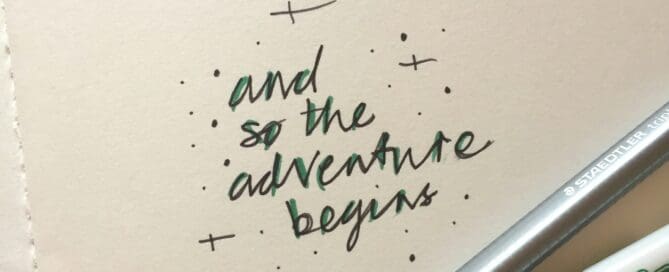 and
so the
adventure
begins.
STAEDTLER